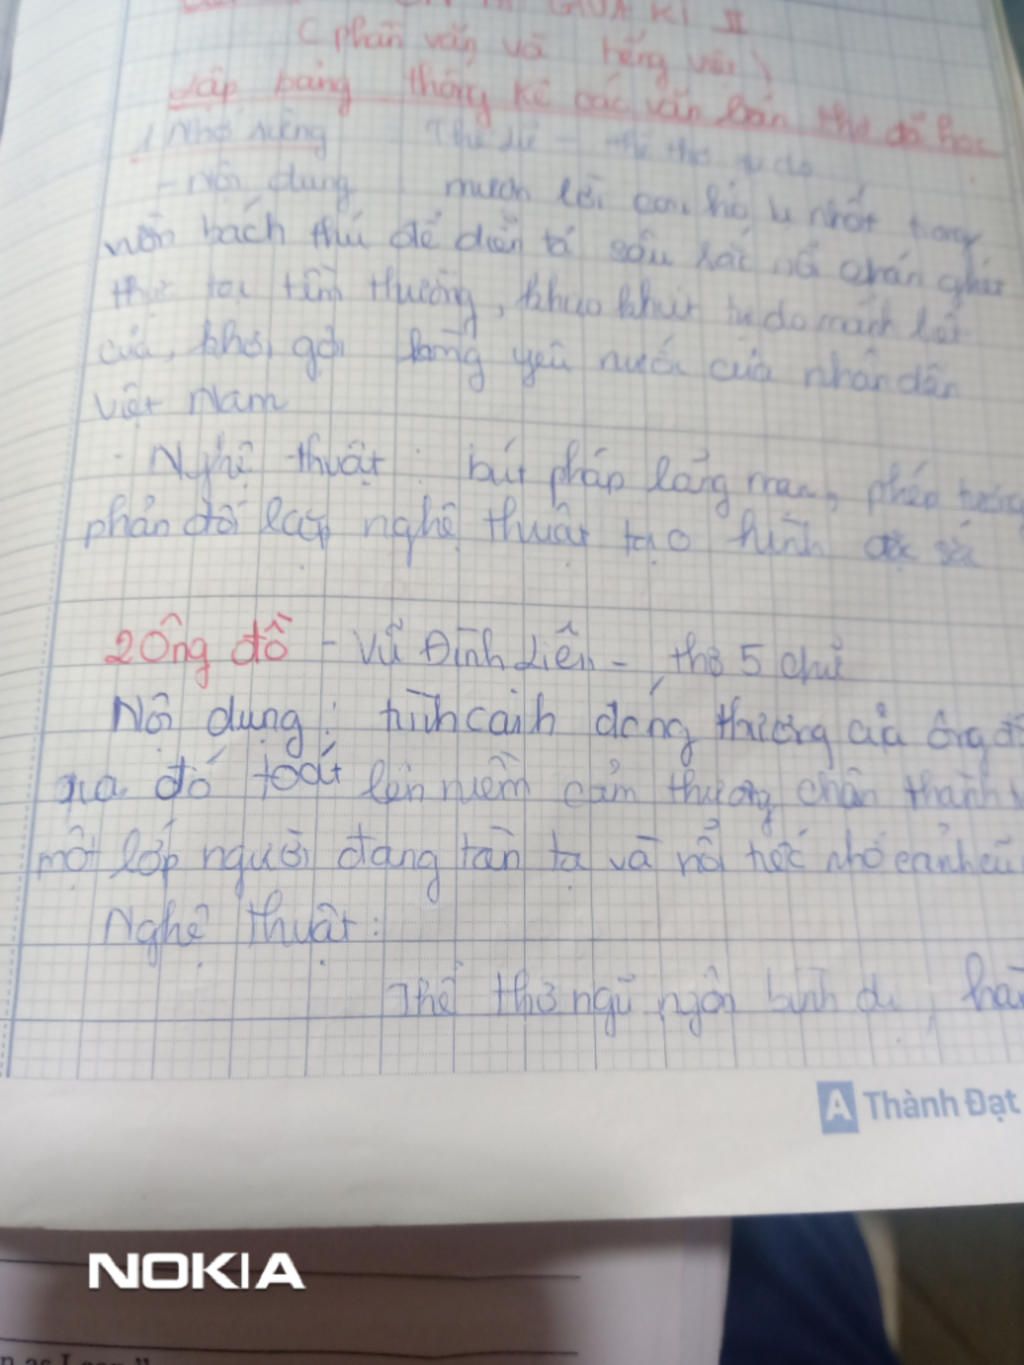 GIỮA KÌ II
( phần văn và tiếng việt )
Lập bảng thống kê các văn bản thơ đã học
1 Nhớ rừng Thế Lữ - thơ tự do
- Nội dung mượn lời con hổ bị nhốt trong
vườn bách thú để diễn tả sâu sắc nỗi chán ghét
thực tại tầm thường, tự do mãnh liệt
của, khơi gợi lòng yêu nước của nhân dân
việt Nam
- Nghệ thuật : bút pháp lãng mạn, phép tương
phản đối lập nghệ thuật tạo hình đặc sắc
2 Ông đồ - Vũ Đình Liên - thơ 5 chữ
Nội dung : tình cảnh đáng thương của ông đồ
qua đó toát lên niềm cảm thương chân thành
một lớp người đang tàn tạ và nỗi tiếc nhớ cảnh cũ
Nghệ thuật :
Thể thơ ngũ ngôn bình dị,
A Thành Đạt
NOKIA